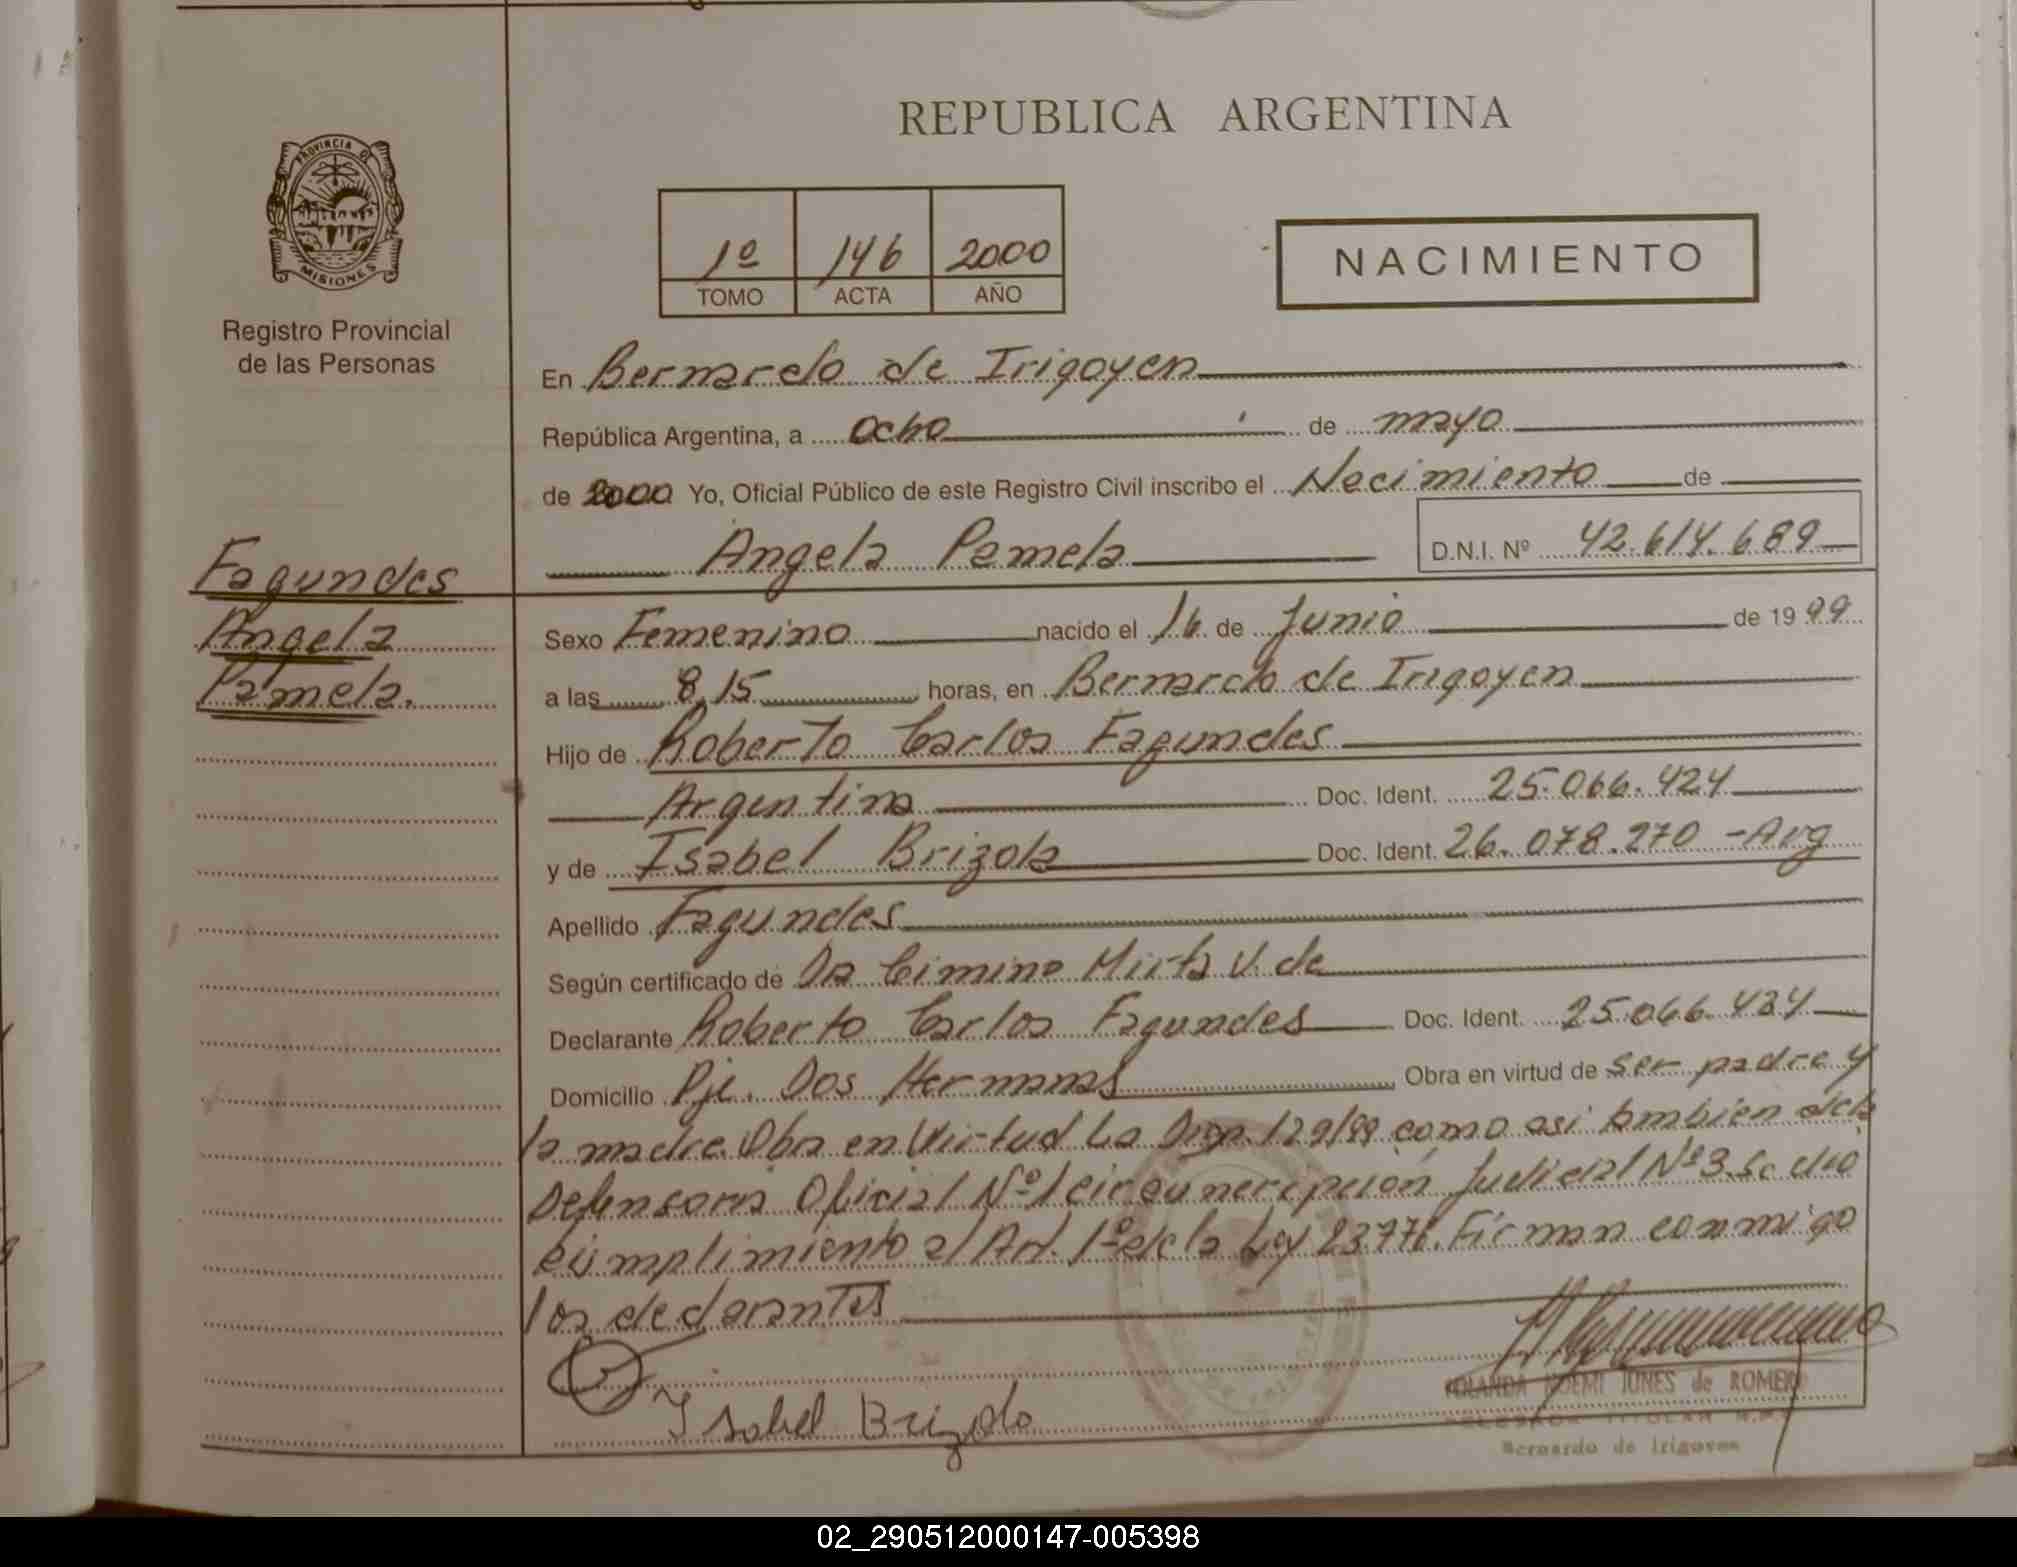 REPUBLICA ARGENTINA
PROVINCIA DE
MISIONES
Registro Provincial
de las Personas
1º 146 2000
TOMO ACTA AÑO
NACIMIENTO
En Bernardo de Irigoyen
República Argentina, a ocho de mayo
de 2000 Yo, Oficial Público de este Registro Civil inscribo el Nacimiento de
Angela Pamela D.N.I. Nº 42.614.689
Fagundes
Angela
Pamela.
Sexo Femenino nacido el 16 de Junio de 1999
a las 8,15 horas, en Bernardo de Irigoyen
Hijo de Roberto Carlos Fagundes
Argentina Doc. Ident. 25.066.424
y de Isabel Brizola Doc. Ident. 26.078.270 - Arg
Apellido Fagundes
Según certificado de Dra Cimino Mirta V. de
Declarante Roberto Carlos Fagundes Doc. Ident. 25.066.424
Domicilio Pje. Dos Hermanas Obra en virtud de ser padre y
la madre. Obra en Virtud La Disp. 129/99 como asi tambien de la
Defensoria Oficial Nº 1 circunscripción Judicial Nº 3. Se dio
cumplimiento al Art. 1º de la Ley 23776. Firman conmigo
los declarantes
Isabel Brizola
YOLANDA NOEMI JUNES de ROMERO
DELEGADA TITULAR R.P.
Bernardo de Irigoyen
02_290512000147-005398